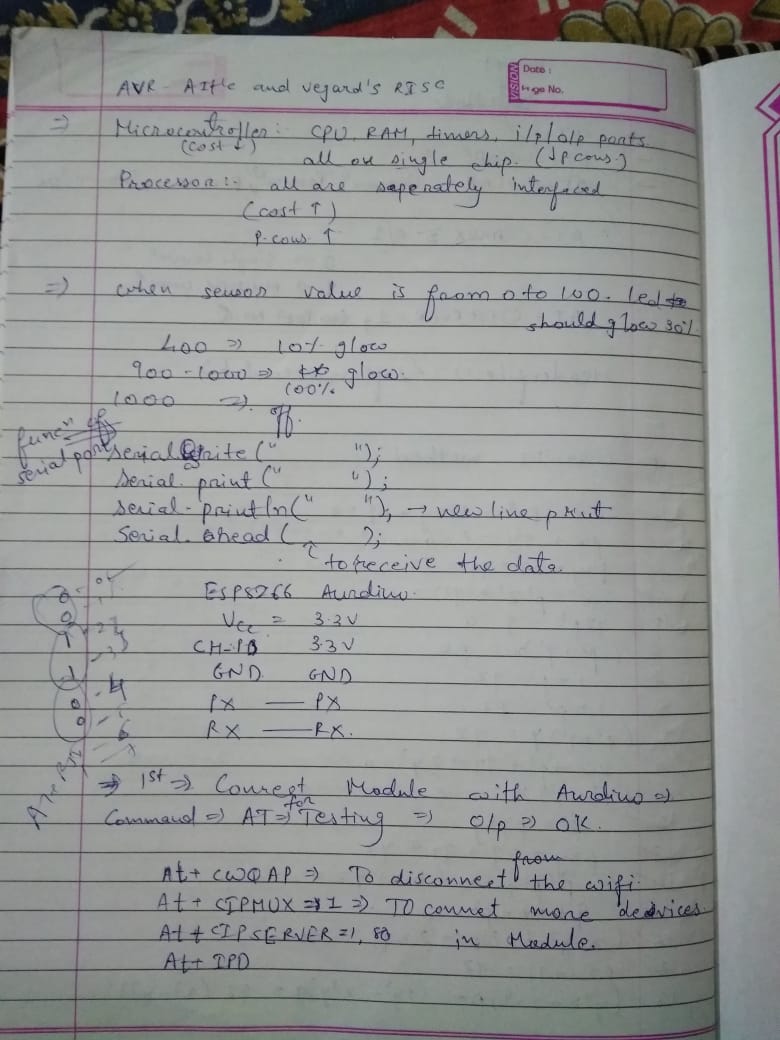 VISION
Date :
Page No.
AVR - Alfle and vegard's RISC
=> Microcontroller : CPU, RAM, timers, i/p/o/p ports
(cost ↓) all on single chip. (↓P cons.)
Processor :- all are saperately interfaced
(cost ↑)
P. cons. ↑
=> when sensor value is from 0 to 100. led
should glow 30%
400 => 10% glow
900 - 1000 => glow.
100%
1000 => off.
funcn of
serial port
serial write (" ");
Serial. print (" ");
serial - println (" "); → new line print
Serial. ( );
↑ to receive the data.
ESP8266 Aurdino.
Vcc = 3.3V
CH-PD 3.3V
GND. GND
PX — PX
RX — RX.
=> 1st => Connect Module with Aurdino =>
Command => AT => for Testing => O/p => OK.
At + CWQAP => To disconnect from the wifi
At + CIPMUX = 1 => TO connet more devices
At + CIPSERVER = 1, 80 in Module.
At + IPD